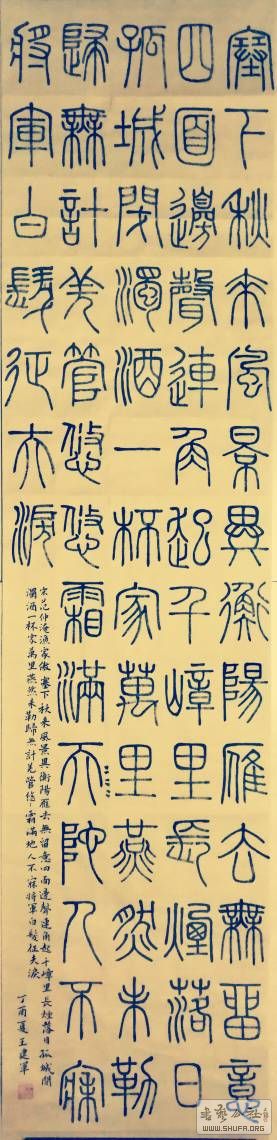 塞下秋來風景異衡陽雁去無留意
四面邊聲連角起千嶂里長煙落日
孤城閉濁酒一杯家萬里燕然未勒
歸無計羌管悠悠霜滿天地人不寐
將軍白髮征夫淚
宋范仲淹漁家傲 塞下秋来風景異衡陽雁去無留意四面邊聲連角起千嶂里長煙落日孤城閉
濁酒一杯家萬里燕然未勒歸無計羌管悠〻霜滿地人不寐將軍白髮征夫淚
丁酉夏王建軍
书艺公社
WWW.SHUFA.ORG